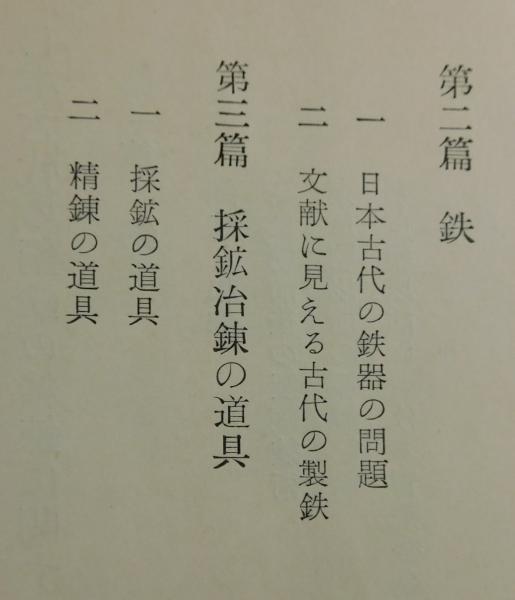 第二篇 鉄
一 日本古代の鉄器の問題
二 文献に見える古代の製鉄
第三篇 採鉱冶錬の道具
一 採鉱の道具
二 精錬の道具